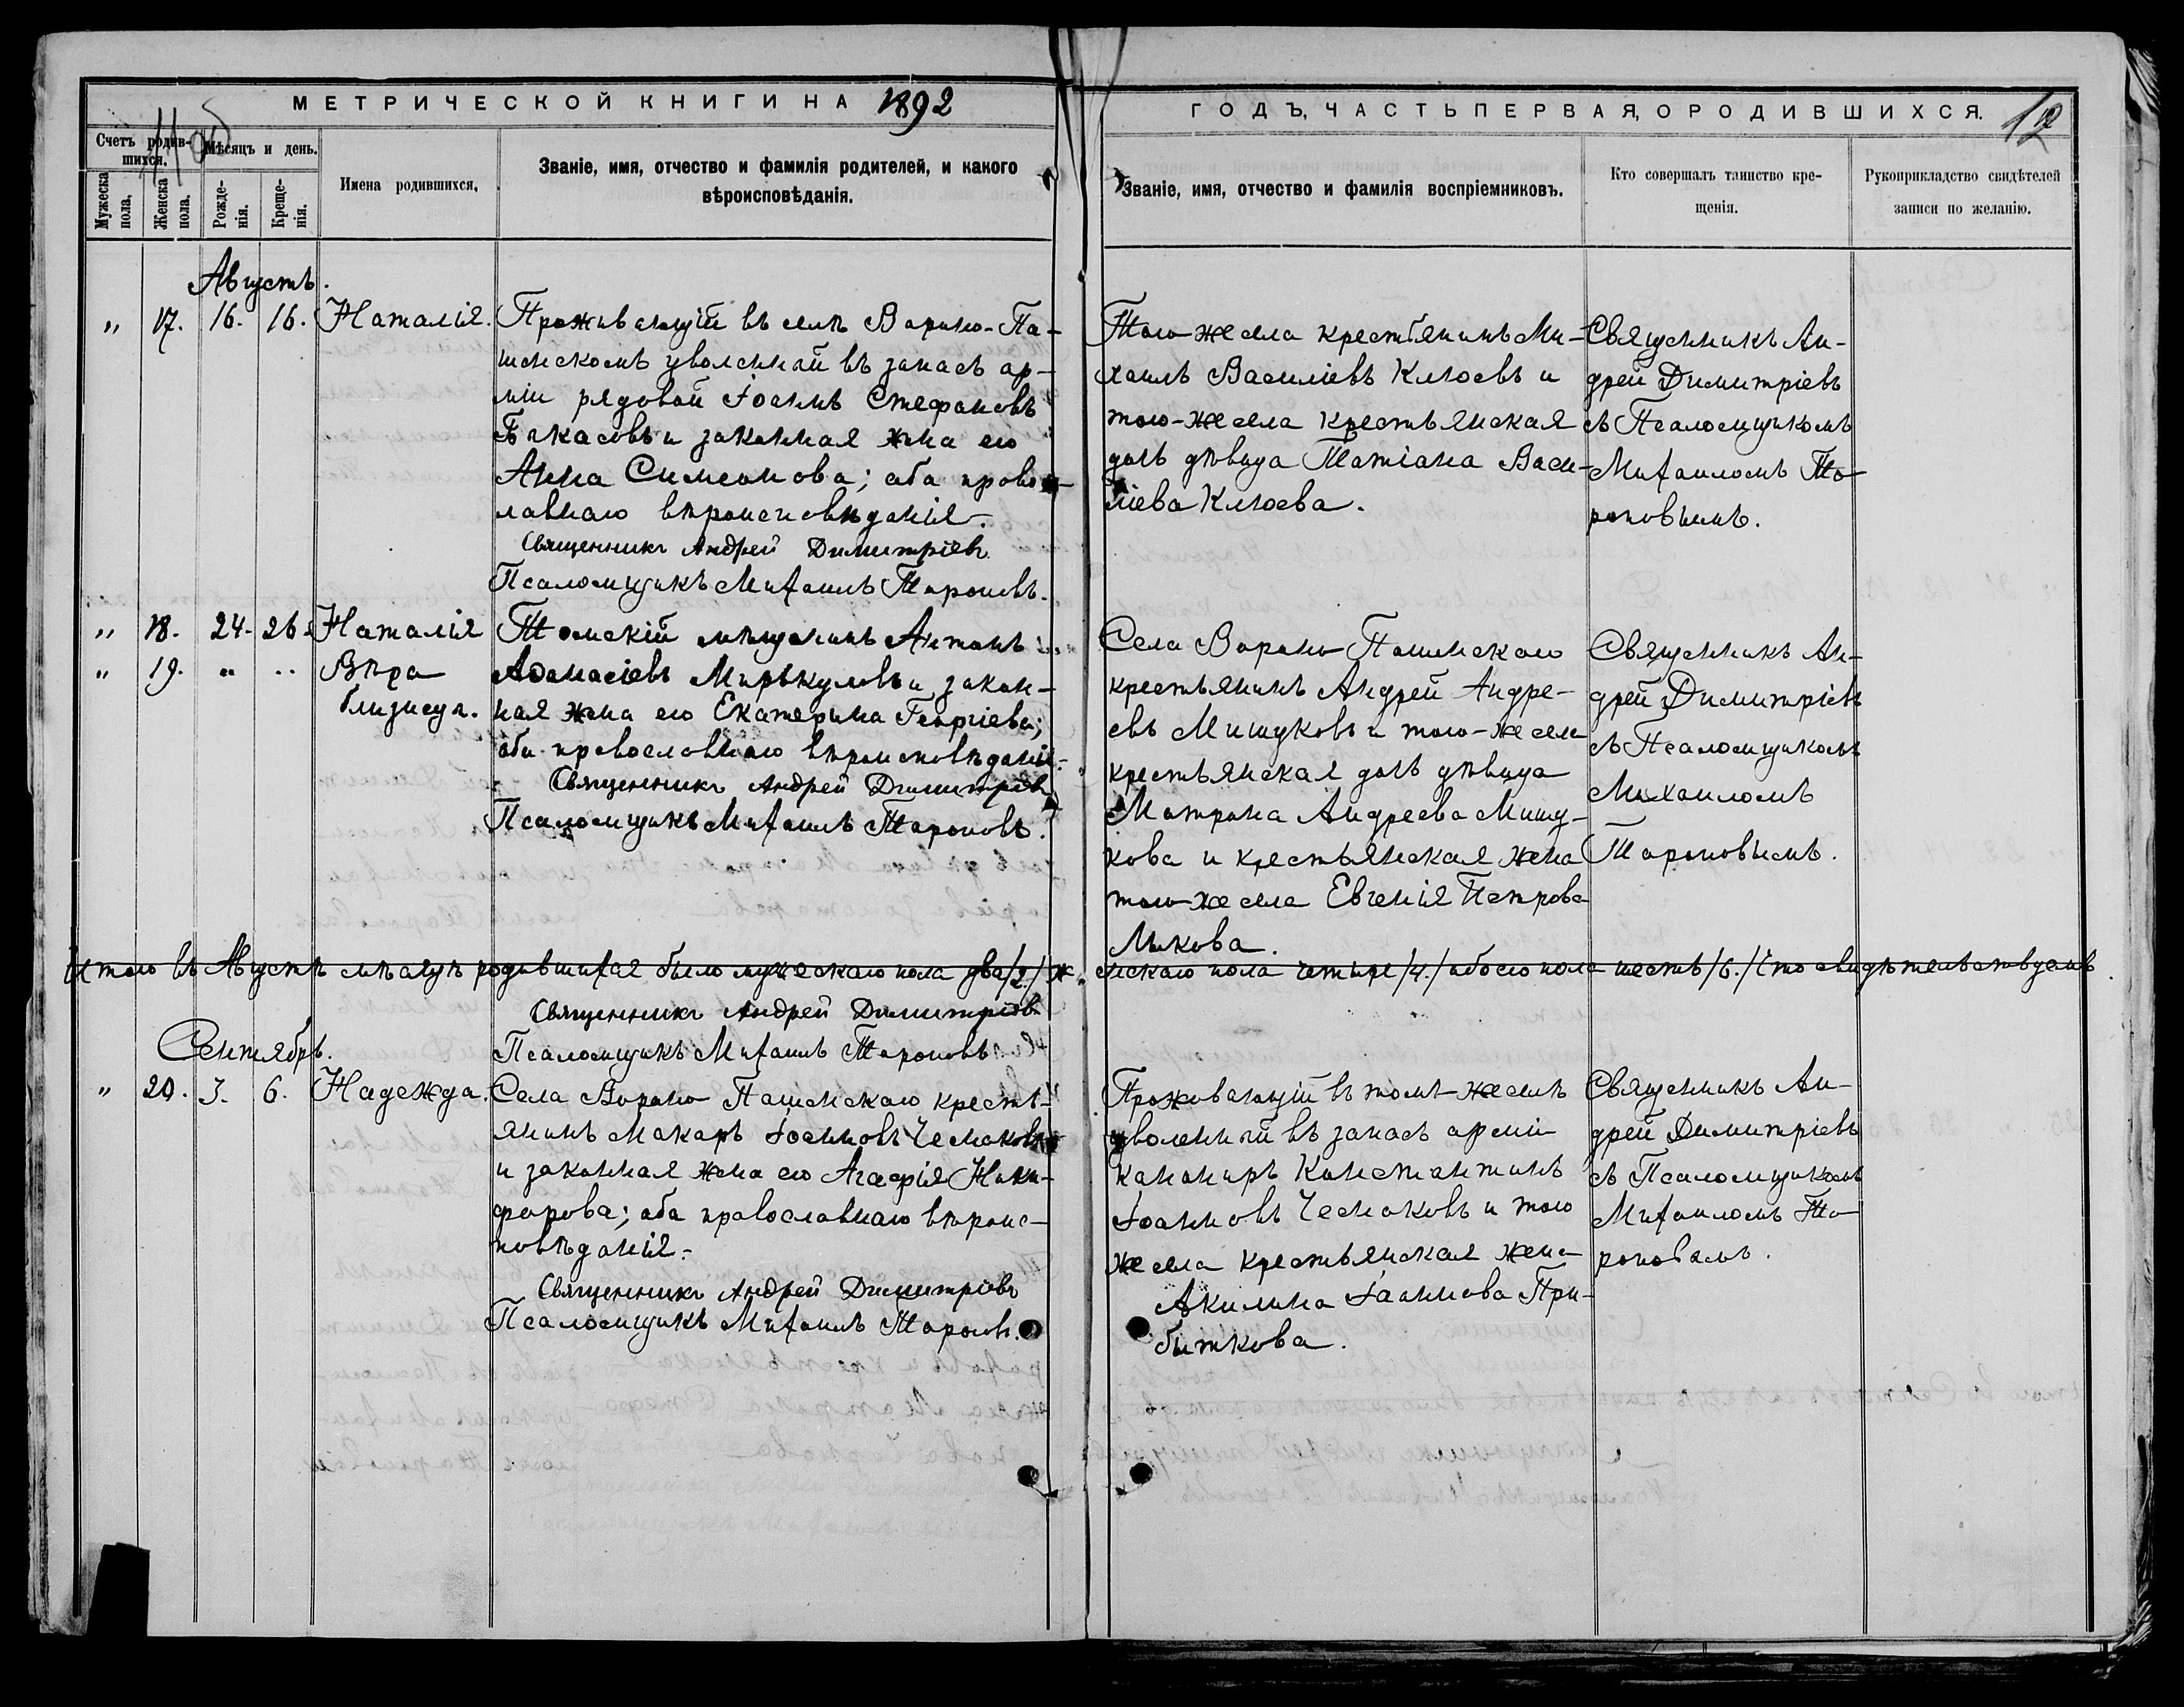 МЕТРИЧЕСКОЙ КНИГИ НА 1892
ГОДЪ, ЧАСТЬ ПЕРВАЯ, О РОДИВШИХСЯ. 12
Счетъ родив-
шихся.
Мѣсяцъ и день.
Мужеска пола.
Женска пола.
Рожде-
нія.
Креще-
нія.
Имена родившихся,
Званіе, имя, отчество и фамилія родителей, и какого
вѣроисповѣданія.
Званіе, имя, отчество и фамилія воспріемниковъ.
Кто совершалъ таинство кре-
щенія.
Рукоприкладство свидѣтелей
записи по желанію.
Августъ.
„ 17. 16. 16. Наталія.
Проживающій въ селѣ Вороно-Па-
шенскомъ уволенной въ запасъ ар-
міи рядовой Іоаннъ Стефановъ
и законная жена его
Анна Симеонова; оба правос-
лавнаго вѣроисповѣданія.
Священникъ Андрей Димитріевъ
Псаломщикъ Михаилъ Тороповъ.
Того-же села крестьянинъ Ми-
хаилъ Василіевъ Клюевъ и
того-же села крестьянская
дочь дѣвица Татіана Васи-
ліева Клюева.
Священникъ Ан-
дрей Димитріевъ
съ Псаломщикомъ
Михаиломъ То-
роповымъ.
„ 18. 24. 26. Наталія
„ 19. „ „ Вѣра
близнецы.
Томскій мѣщанинъ Антонъ
Аѳанасіевъ и закон-
ная жена его Екатерина Георгіева;
оба православнаго вѣроисповѣданія.
Священникъ Андрей Димитріевъ
Псаломщикъ Михаилъ Тороповъ.
Села Вороно Пашенскаго
крестьянинъ Андрей Андре-
евъ Мишуковъ и того-же села
крестьянская дочь дѣвица
Матрона Андреева Мишу-
кова и крестьянская жена
того-же села Евгенія Петрова
Лыкова.
Священникъ Ан-
дрей Димитріевъ
съ Псаломщикомъ
Михаиломъ
Тороповымъ.
Итого въ Августѣ мѣсяцѣ родившихся было мужескаго пола два /2./ женскаго пола четыре /4./ обоего пола шесть /6./ Что свидѣтельствуемъ.
Священникъ Андрей Димитріевъ
Псаломщикъ Михаилъ Тороповъ
Сентябрь.
„ 20. 3. 6. Надежда.
Села Вороно Пашенскаго кресть-
янинъ Макаръ Іоанновъ Чесноковъ
и законная жена его Агафія Ники-
форова; оба православнаго вѣроис-
повѣданія.
Священникъ Андрей Димитріевъ
Псаломщикъ Михаилъ Тороповъ.
Проживающій въ томъ-же селѣ
уволенной въ запасъ арміи
канониръ Константинъ
Іоанновъ Чесноковъ и того
же села крестьянская жена
Акилина Іоаннова При-
быткова.
Священникъ Ан-
дрей Димитріевъ
съ Псаломщикомъ
Михаиломъ То-
роповымъ.